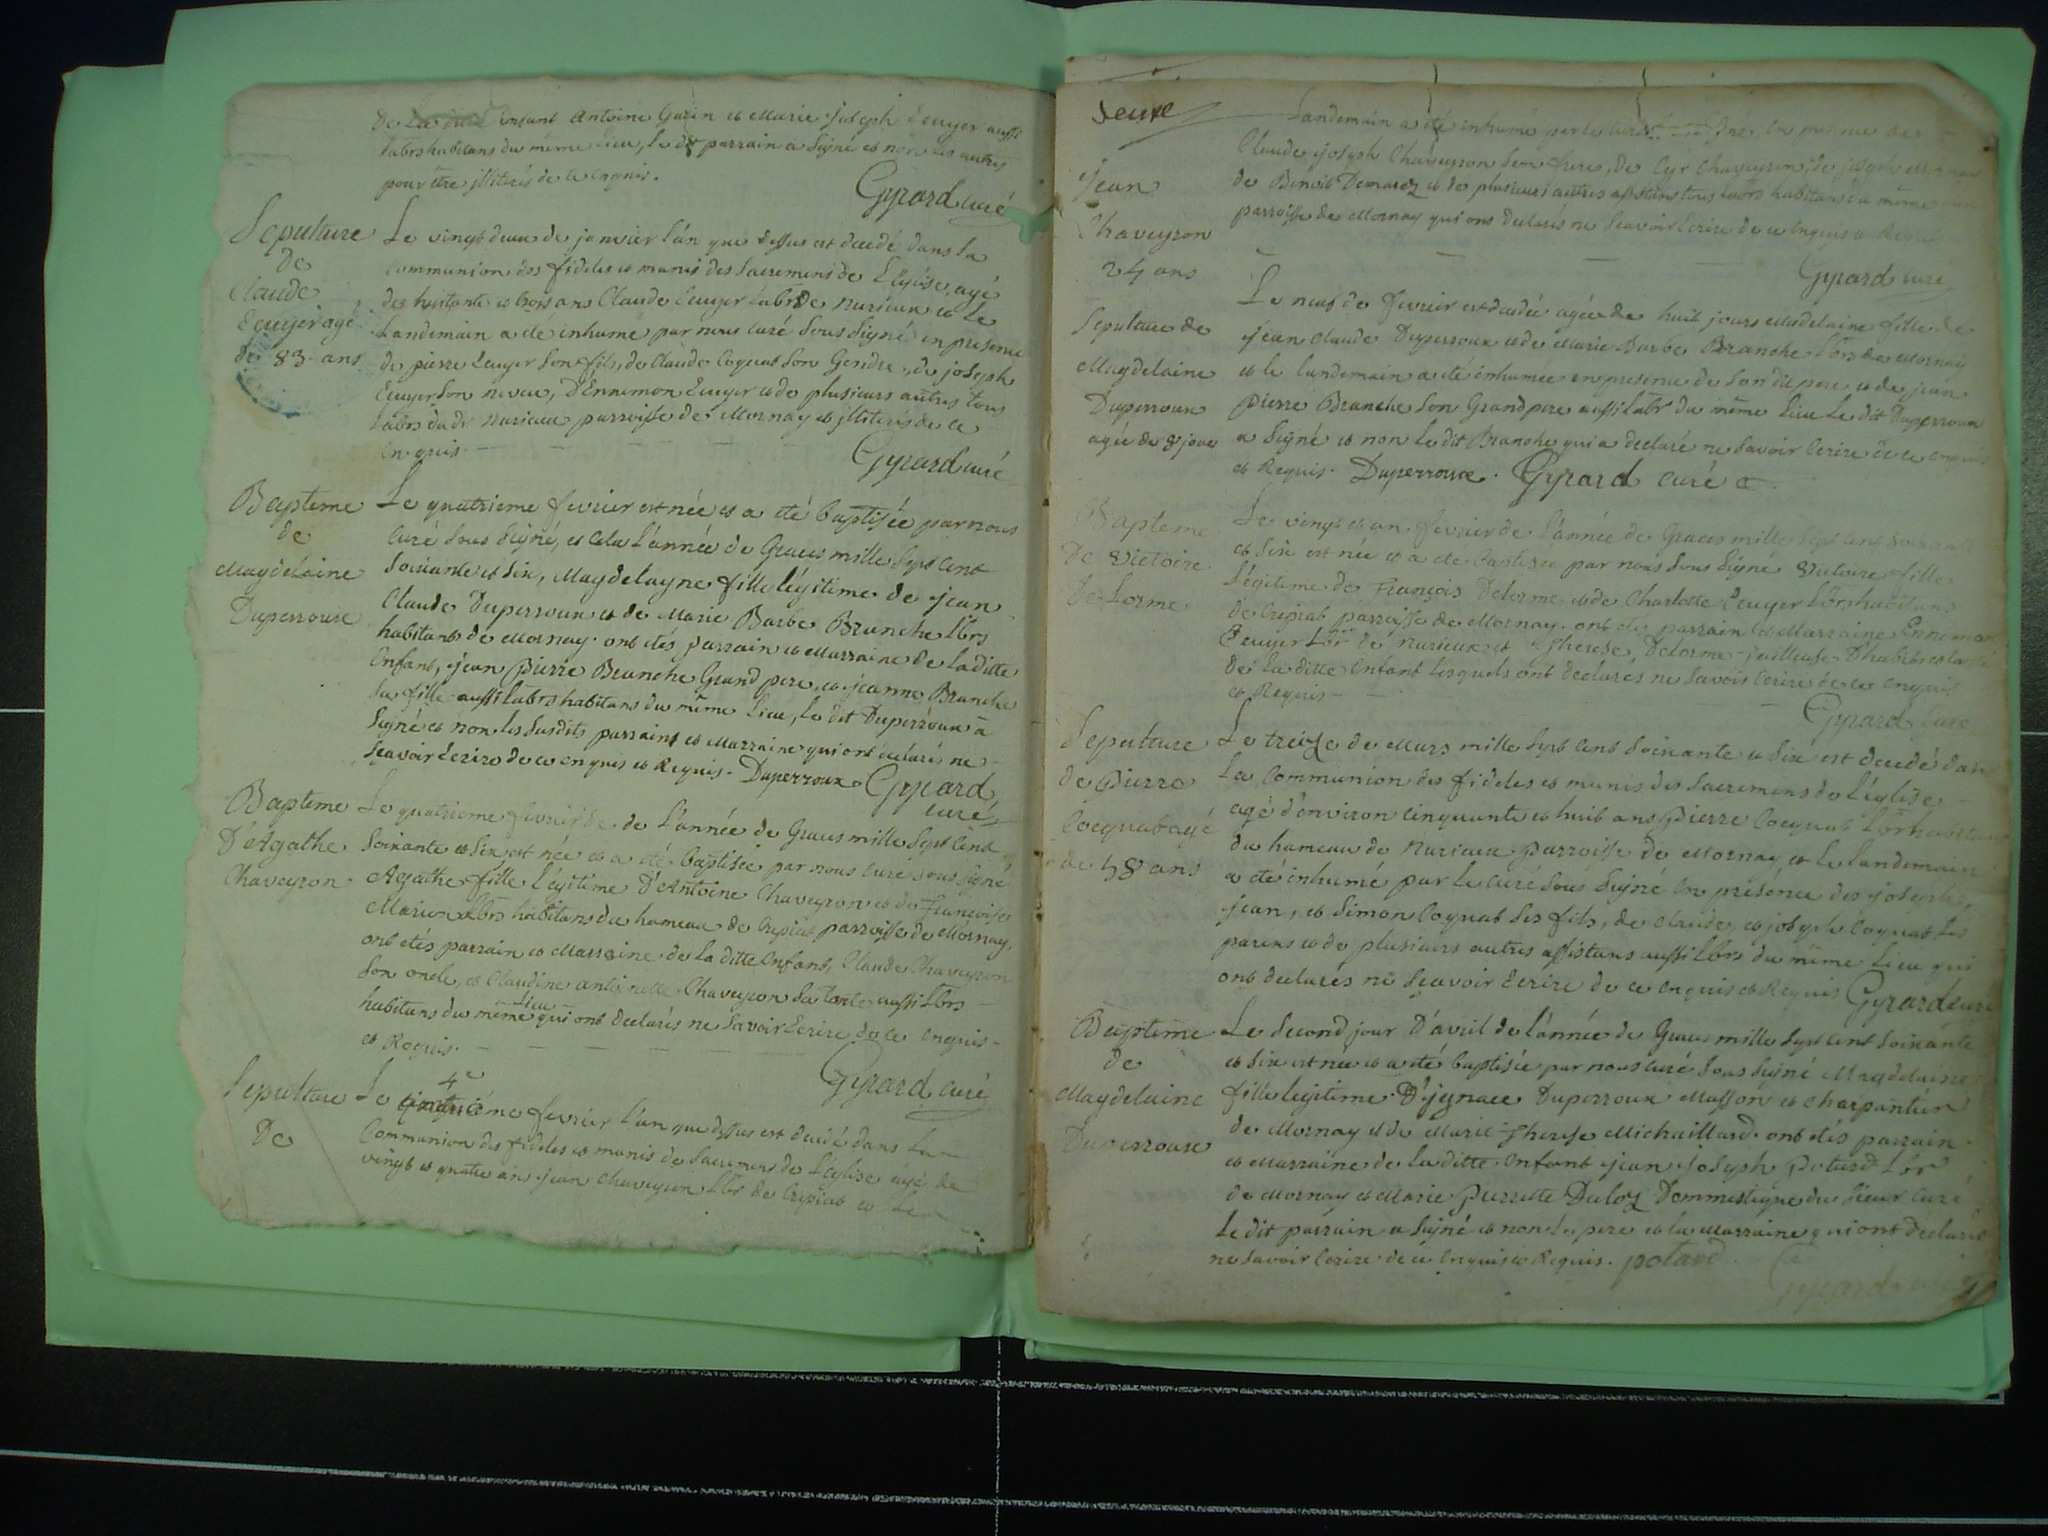 enfant Antoine Gurin et Marie joseph Ecuyer aussi
labrs habitans du même lieu, le dt parrain a signé et non les autres
pour être illiterés de ce enquis.
Gyrard curé
Sepulture
de
Claude
Ecuyer agé
de 83 ans
Le vingt deux de janvier l'an que dessus est decedé dans la
communion des fideles et munis des sacremens de l'Eglise, agé
des huitante et trois ans Claude Ecuyer labr de Nurieux et le
landemain a été inhumé par nous curé sous signé en presence
de pierre Ecuyer son fils, de Claude Coquat son Gendre, de joseph
Ecuyer son neveu, d'Ennemon Ecuyer et de plusieurs autres tous
labrs du dt Nurieux parroisse de Mornay et illiterés de ce
enquis
Gyrard curé
Bapteme
de
Magdelaine
Duperroux
Le quatrieme fevrier est née et a été baptisée par nous
curé sous signé, et cela l'année de Graces mille sept cent
soixante et six, Magdelayne fille légitime de jean
Claude Duperroux et de Marie Barbe Branche lbrs
habitants de Mornay. ont étés parrain et Marraine de la ditte
enfant, jean Pierre Branche Grand pere, et jeanne Branche
sa fille aussi labrs habitans du même lieu, le dit Duperroux a
signé et non les susdits parrains et Marraine qui ont declaré ne
sçavoir Ecrire de ce enquis et Requis. Duperroux Gyrard
curé
Bapteme
D'Agathe
Chaveyron
Le quatrieme fevrier de l'année de Graces mille sept cent
soixante et six est née et a été baptisée par nous curé sous signé
Agathe fille légitime d'Antoine Chaveyron et de Françoise
Marion lbrs habitans du hameau de Crepiat parroisse de Mornay,
ont étés parrain et Marraine de la ditte enfant, Claude Chaveyron
son oncle, et Claudine antoinette Chaveyron sa tante aussi lbrs
habitans du même lieu qui ont declarés ne savoir Ecrire de ce enquis
et Requis.
Gyrard curé
Sepulture
De
Le 4e fevrier l'an que dessus est decedé dans la
Communion des fideles et munis de sacremens de l'Eglise agé de
vingt et quatre ans jean Chaveyron lbr de Crepiat et le
jean
Chaveyron
24 ans
landemain a été inhumé par le curé sous signé en presence de
Claude joseph Chaveyron son frere, de Cyr Chaveyron, de joseph
de Benoit Demarez et de plusieurs autres assistans tous labrs habitans du même
parroisse de Mornay qui ons declarés ne sçavoir Ecrire de ce Enquis et Requis
Gyrard curé
Sepulture de
Magdelaine
Duperroux
agée de 8 jours
Le neuf de fevrier est decedée agée de huit jours Madelaine fille de
jean Claude Duperroux et de Marie Barbe Branche lbrs de Mornay
et le landemain a été inhumée en presence de son dit pere et de jean
pierre Branche son Grand pere aussi labr du même lieu le dit Duperroux
a signé et non le dit Branche qui a declaré ne savoir Ecrire de ce enquis
et Requis. Duperroux. Gyrard curé
Bapteme
De Victoire
De Lorme
Le vingt et un fevrier de l'année de Graces mille sept cent soixante
et six est née et a été baptisée par nous sous signé Victoire fille
légitime de François Delorme et de Charlotte Ecuyer lbrs habitans
de Crepiat parroisse de Mornay. ont étés parrain et Marraine Ennemon
Ecuyer lbr de Nurieux et Therese Delorme
de la ditte enfant lesquels ont declarés ne savoir Ecrire de ce enquis
et Requis
Gyrard curé
Sepulture
de Pierre
Cocquat agé
de 58 ans
Le treize de Mars mille sept cent soixante et six est decedé dans
la Communion des fideles et munis des sacremens de l'église
agé d'environ cinquante et huit ans Pierre Cocquat lbr habitant
du hameau de Nurieux parroisse de Mornay, et le landemain
a été inhumé par le curé sous signé en présence des joseph,
jean, et Simon Coquat ses fils, de Claude, et joseph Coquat ses
parens et de plusieurs autres assistans aussi lbrs du même lieu qui
ont declarés ne sçavoir Ecrire de ce enquis et Requis Gyrard curé
Bapteme
de
Magdelaine
Duperroux
Le second jour d'avril de l'année de Graces mille sept cent soixante
et six est née et a été baptisée par nous curé sous signé Magdelaine
fille légitime D'jgnace Duperroux Masson et Charpantier
de Mornay et de Marie Therese Michaillard. ont étés parrain
et Marraine de la ditte enfant jean joseph Potard lbr
de Mornay et Marie Pierrette Daloz Dommestique du sieur curé
le dit parrain a signé et non le pere et la Marraine qui ont declarés
ne savoir Ecrire de ce enquis et Requis. potard
Gyrard curé